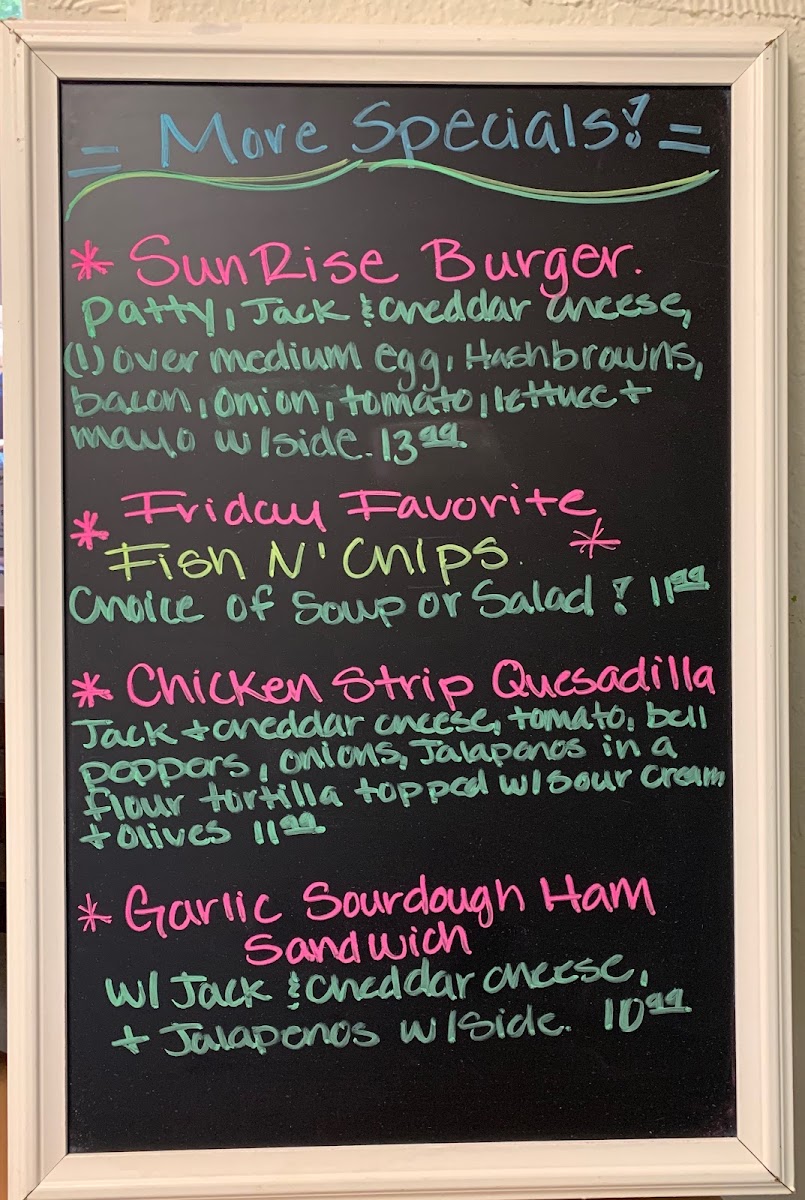 = More Specials! =
* SunRise Burger.
Patty, Jack & cheddar cheese,
(1) over medium egg, Hashbrowns,
bacon, onion, tomato, lettuce +
mayo w/side. 13.99
* Friday Favorite
Fish N' Chips *
Choice of Soup or Salad! 11.99
* Chicken Strip Quesadilla
Jack + cheddar cheese, tomato, bell
peppers, onions, Jalapenos in a
flour tortilla topped w/sour cream
+ olives 11.99
* Garlic Sourdough Ham
Sandwich
w/ Jack & cheddar cheese,
+ Jalapenos w/side. 10.99